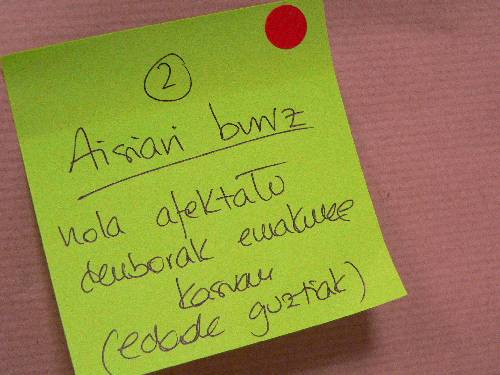 2
Aisiari buruz
nola afektatu
denborak emakumee
kasuan
(edade guztiak)